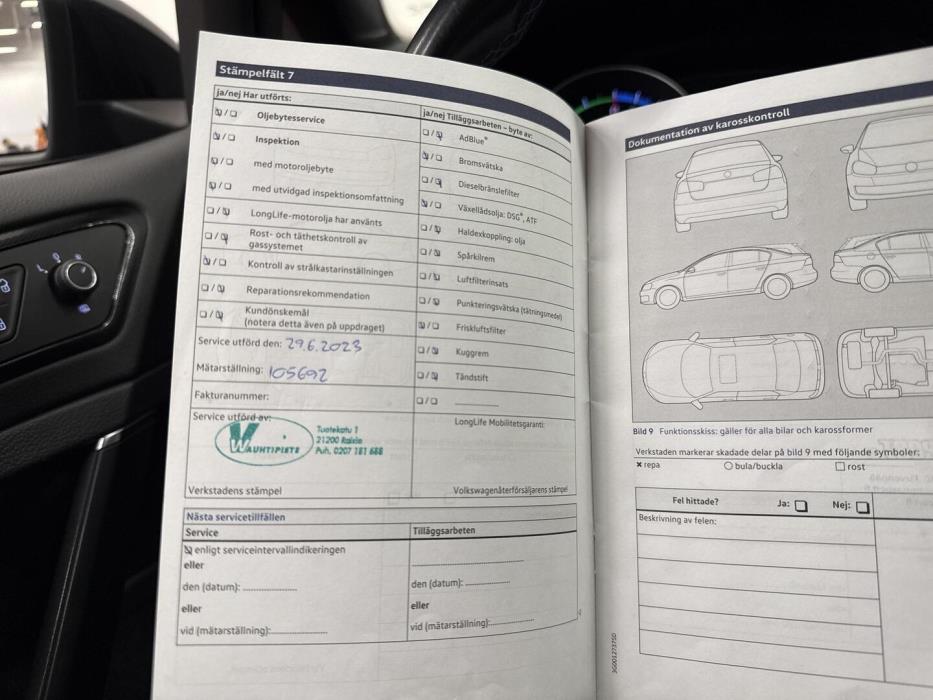 Stämpelfält 7
ja/nej Har utförts:
Oljebytesservice
Inspektion
med motoroljebyte
med utvidgad inspektionsomfattning
LongLife-motorolja har använts
Rost- och täthetskontroll av
gassystemet
Kontroll av strålkastarinställningen
Reparationsrekommendation
Kundönskemål
(notera detta även på uppdraget)
Service utförd den: 29.6.2023
Mätarställning: 105692
Fakturanummer:
Service utförd av:
WAUHTIPISTE
Tuotekatu 1
21200 Raisio
Puh. 0207 181 688
Verkstadens stämpel
ja/nej Tilläggsarbeten – byte av:
AdBlue®
Bromsvätska
Dieselbränslefilter
Växellådsolja: DSG®, ATF
Haldexkoppling: olja
Spårkilrem
Luftfilterinsats
Punkteringsvätska (tätningsmedel)
Friskluftsfilter
Kuggrem
Tändstift
LongLife Mobilitetsgaranti:
Volkswagenåterförsäljarens stämpel
Nästa servicetillfällen
Service
Tilläggsarbeten
enligt serviceintervallindikeringen
eller
den (datum):
den (datum):
eller
eller
vid (mätarställning):
vid (mätarställning):
Dokumentation av karosskontroll
Bild 9 Funktionsskiss: gäller för alla bilar och karossformer
Verkstaden markerar skadade delar på bild 9 med följande symboler:
× repa ○ bula/buckla □ rost
Fel hittade? Ja: □ Nej: □
Beskrivning av felen:
3G0012737SD